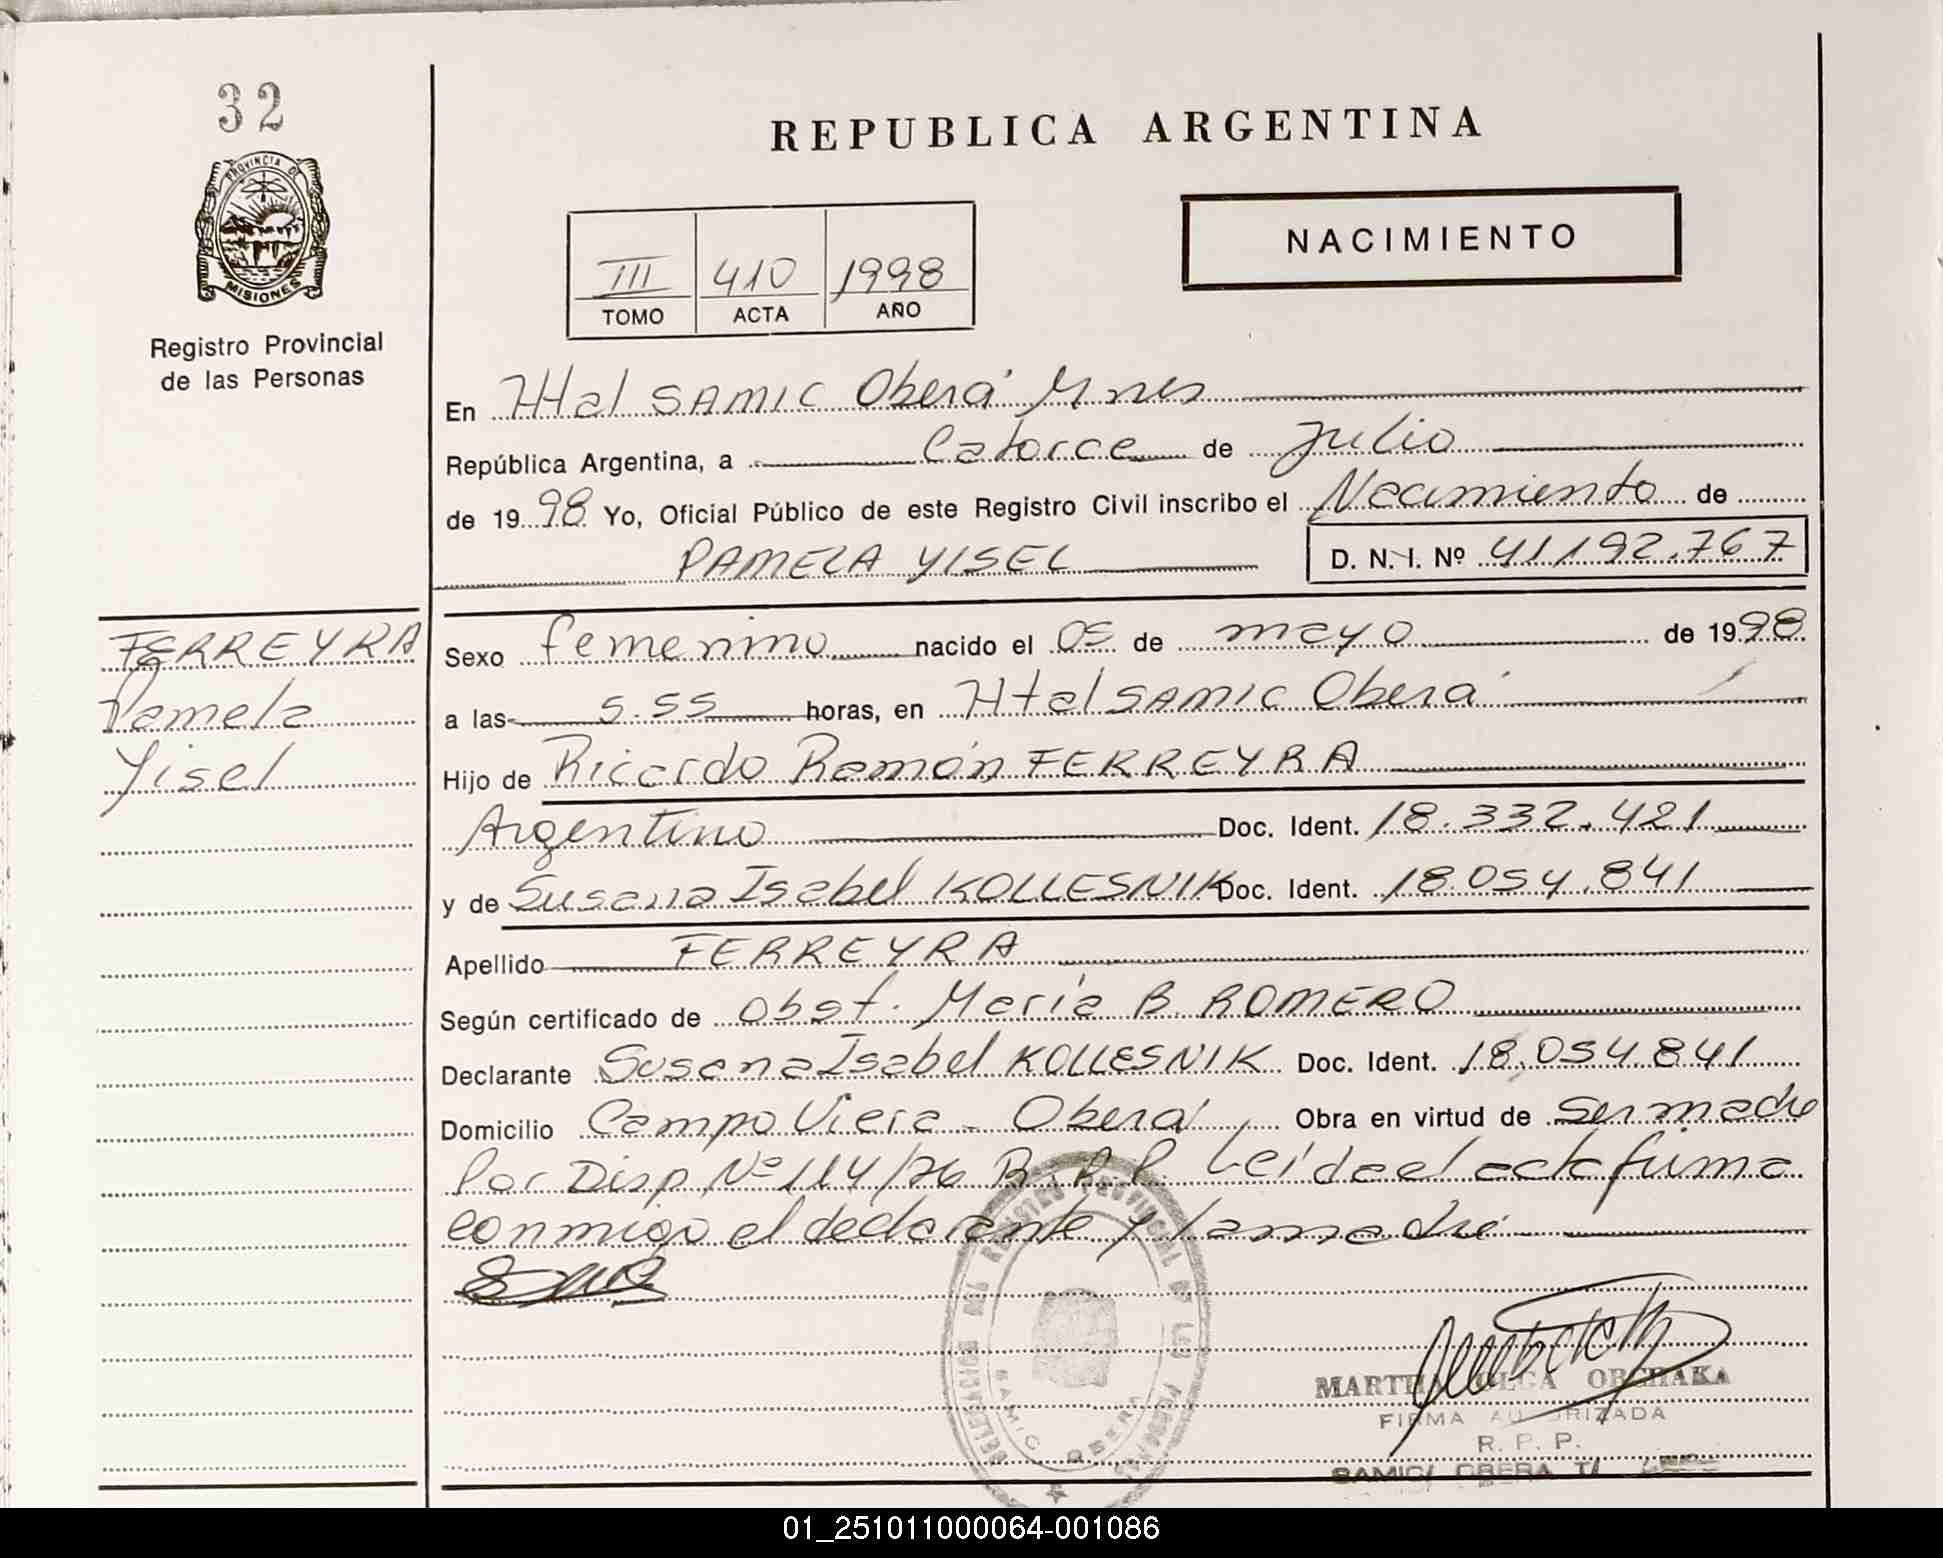 32
PROVINCIA DE
MISIONES
Registro Provincial
de las Personas
REPUBLICA ARGENTINA
NACIMIENTO
III 410 1998
TOMO ACTA AÑO
En Htal SAMIC Oberá Mnes
República Argentina, a Catorce de Julio
de 1998 Yo, Oficial Público de este Registro Civil inscribo el Nacimiento de
PAMELA YISEL D. N. I. Nº 41.192.767
FERREYRA
Pamela
Yisel
Sexo femenino nacido el 05 de mayo de 1998
a las 5.55 horas, en Htal SAMIC Oberá
Hijo de Ricardo Ramón FERREYRA
Argentino Doc. Ident. 18.332.421
y de Susana Isabel KOLLESNIK Doc. Ident. 18.054.841
Apellido FERREYRA
Según certificado de Obst. María B. ROMERO
Declarante Susana Isabel KOLLESNIK Doc. Ident. 18.054.841
Domicilio Campo Viera - Oberá Obra en virtud de ser madre
Por Disp Nº 114/76 R.P.P. Leída el acta firma
conmigo el declarante y la madre
DELEGACION DEL REGISTRO PROVINCIAL DE LAS PERSONAS
SAMIC OBERA
MARTHA OLGA ORCHAKA
FIRMA AUTORIZADA
R. P. P.
SAMIC/ OBERA T/
01_251011000064-001086